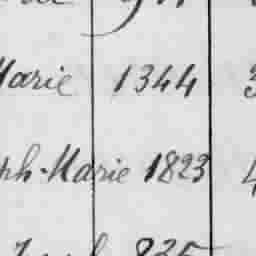 Marie 1344 3
ph-Marie 1823 4
835